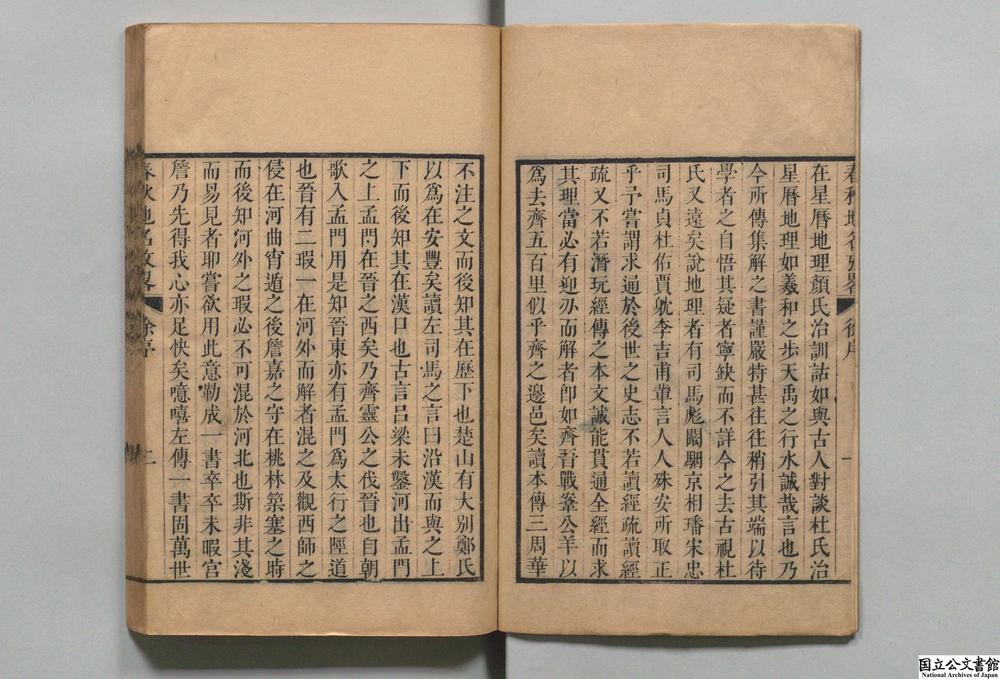 春秋地名攷畧 徐序 一
在星曆地理顏氏治訓詁如與古人對談杜氏治
星曆地理如羲和之步天禹之行水誠哉言也乃
今所傳集解之書謹嚴特甚往往稍引其端以待
學者之自悟其疑者寧缺而不詳今之去古視杜
氏又遠矣說地理者有司馬彪闞駰京相璠宋忠
司馬貞杜佑賈躭李吉甫軰言人人殊安所取正
乎予嘗謂求通於後世之史志不若讀經疏讀經
疏又不若潛玩經傳之本文誠能貫通全經而求
其理當必有迎刃而解者卽如齊晉戰鞌公羊以
爲去齊五百里似乎齊之邊邑矣讀本傳三周華
不注之文而後知其在歷下也楚山有大別鄭氏
以爲在安豐矣讀左司馬之言曰沿漢而與之上
下而後知其在漢口也古言呂梁未鑿河出孟門
之上孟門在晉之西矣乃齊靈公之伐晉也自朝
歌入孟門用是知晉東亦有孟門爲太行之陘道
也晉有二瑕一在河外而解者混之及觀西師之
侵在河曲宵遁之後詹嘉之守在桃林築塞之時
而後知河外之瑕必不可混於河北也斯非其淺
而易見者耶嘗欲用此意勒成一書卒卒未暇宫
詹乃先得我心亦足快矣噫嘻左傳一書固萬世
春秋地名攷畧 徐序 二
国立公文書館
National Archives of Japan